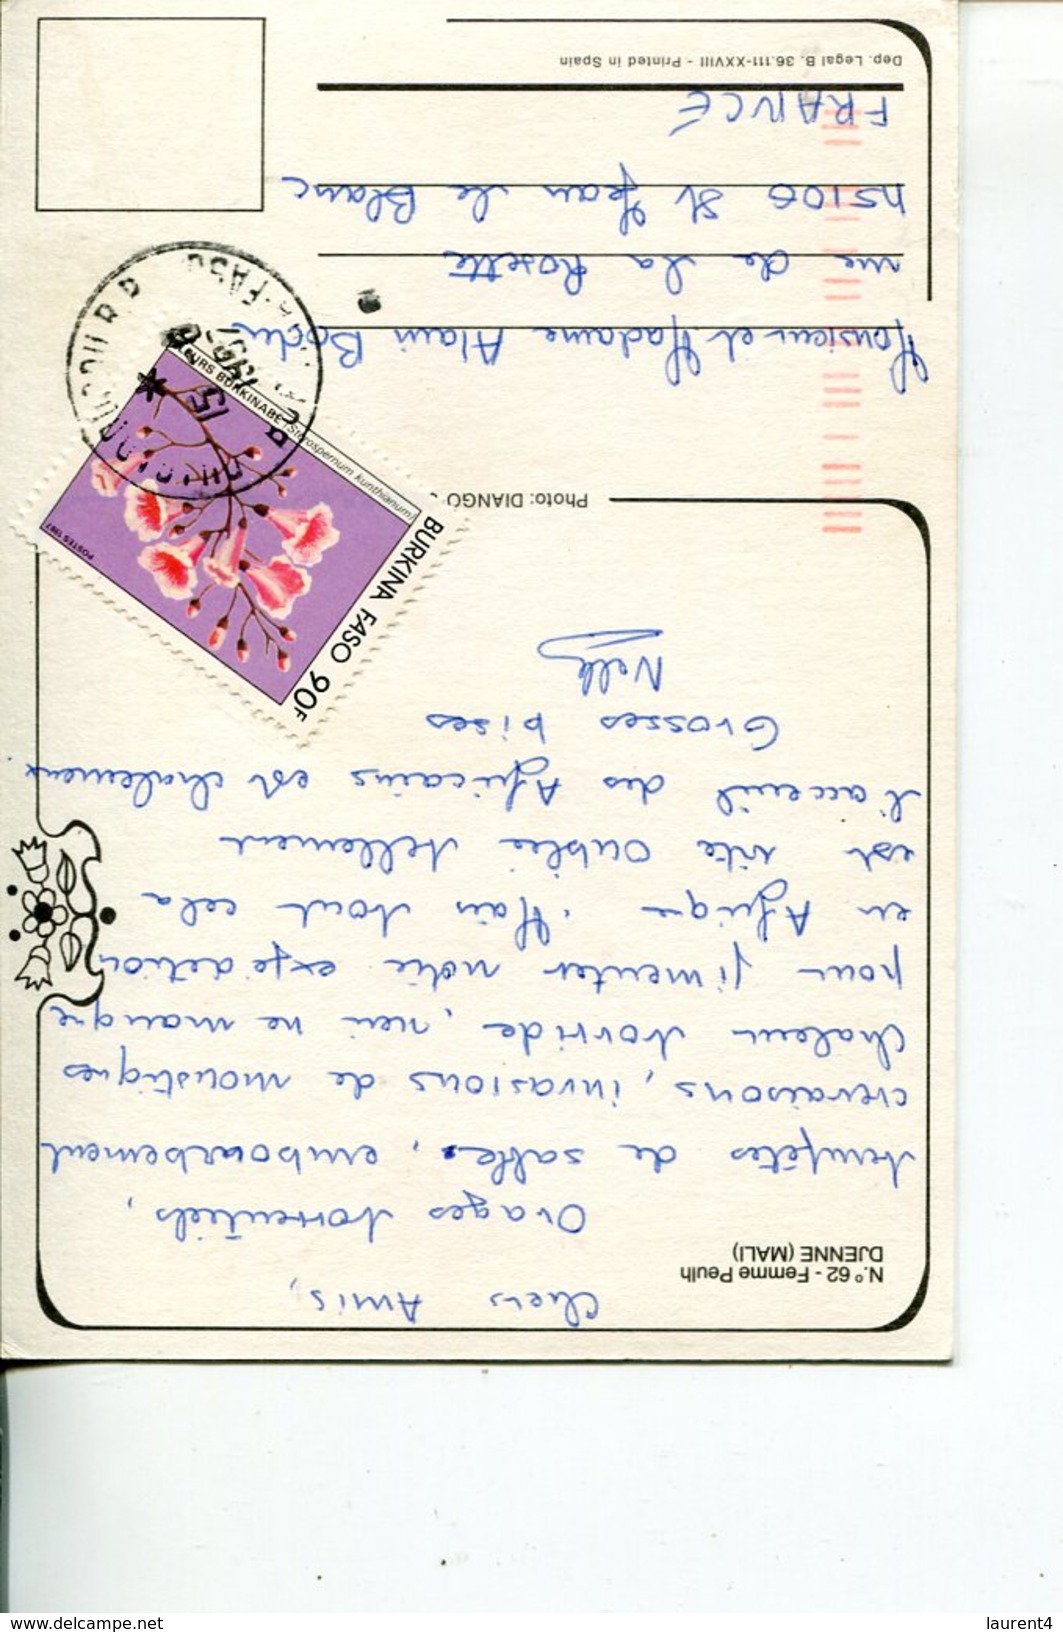 N.º 62 - Femme Peulh
DJENNE (MALI)
Chers Amis,
Orages torrentiels,
tempêtes de sable, embourbement
crevaisons, invasions de moustiques
Chaleur torride, rien ne manque
pour pimenter notre expédition
en Afrique. Mais tout cela
est vite oublié tellement
l'accueil des Africains est chaleureux
Grosses bises
Nelly
Photo: DIANGO
Monsieur et Madame Alain
rue de la Rosette
45100 St Jean le Blanc
FRANCE
Dep. Legal B. 36.111-XXVIII - Printed in Spain
BURKINA FASO 90F
FLEURS BURKINABE (Stereospermum kunthianum)
POSTES 1987
15
delcampe.net
laurent4